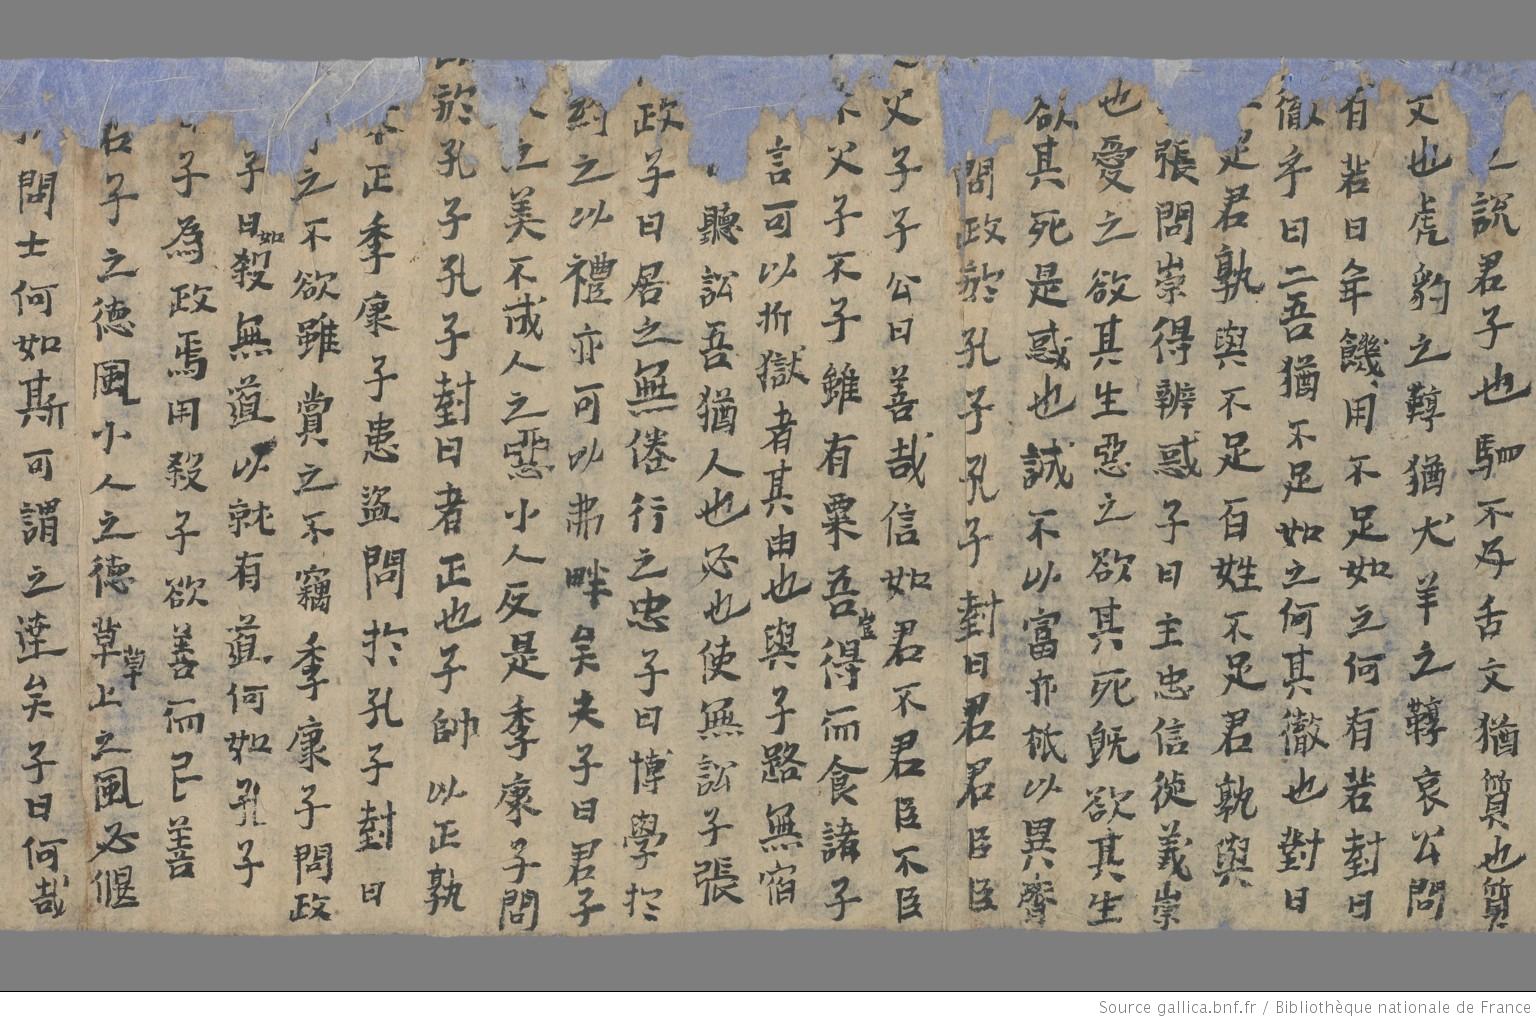 說君子也駟不及舌文猶質也質
文也虎豹之鞟猶犬羊之鞟哀公問
有若曰年饑用不足如之何有若對曰
徹乎曰二吾猶不足如之何其徹也對曰
足君孰與不足百姓不足君孰與
張問崇得辨惑子曰主忠信從義崇
也愛之欲其生惡之欲其死既欲其生
欲其死是惑也誠不以富亦秖以異齊
問政於孔子孔子對曰君君臣臣
父子子公曰善哉信如君不君臣不臣
不父子不子雖有粟吾豈得而食諸子
言可以折獄者其由也與子路無宿
聽訟吾猶人也必也使無訟子張
政子曰居之無倦行之忠子曰博學於
約之以禮亦可以弗畔矣夫子曰君子
之美不成人之惡小人反是季康子問
於孔子孔子對曰者正也子帥以正孰
不正季康子患盜問於孔子對曰
之不欲雖賞之不竊季康子問政
子曰如殺無道以就有道何如孔子
子為政焉用殺子欲善而已善
君子之德風小人之德草草上之風必偃
問士何如斯可謂之達矣子曰何哉
Source gallica.bnf.fr / Bibliothèque nationale de France